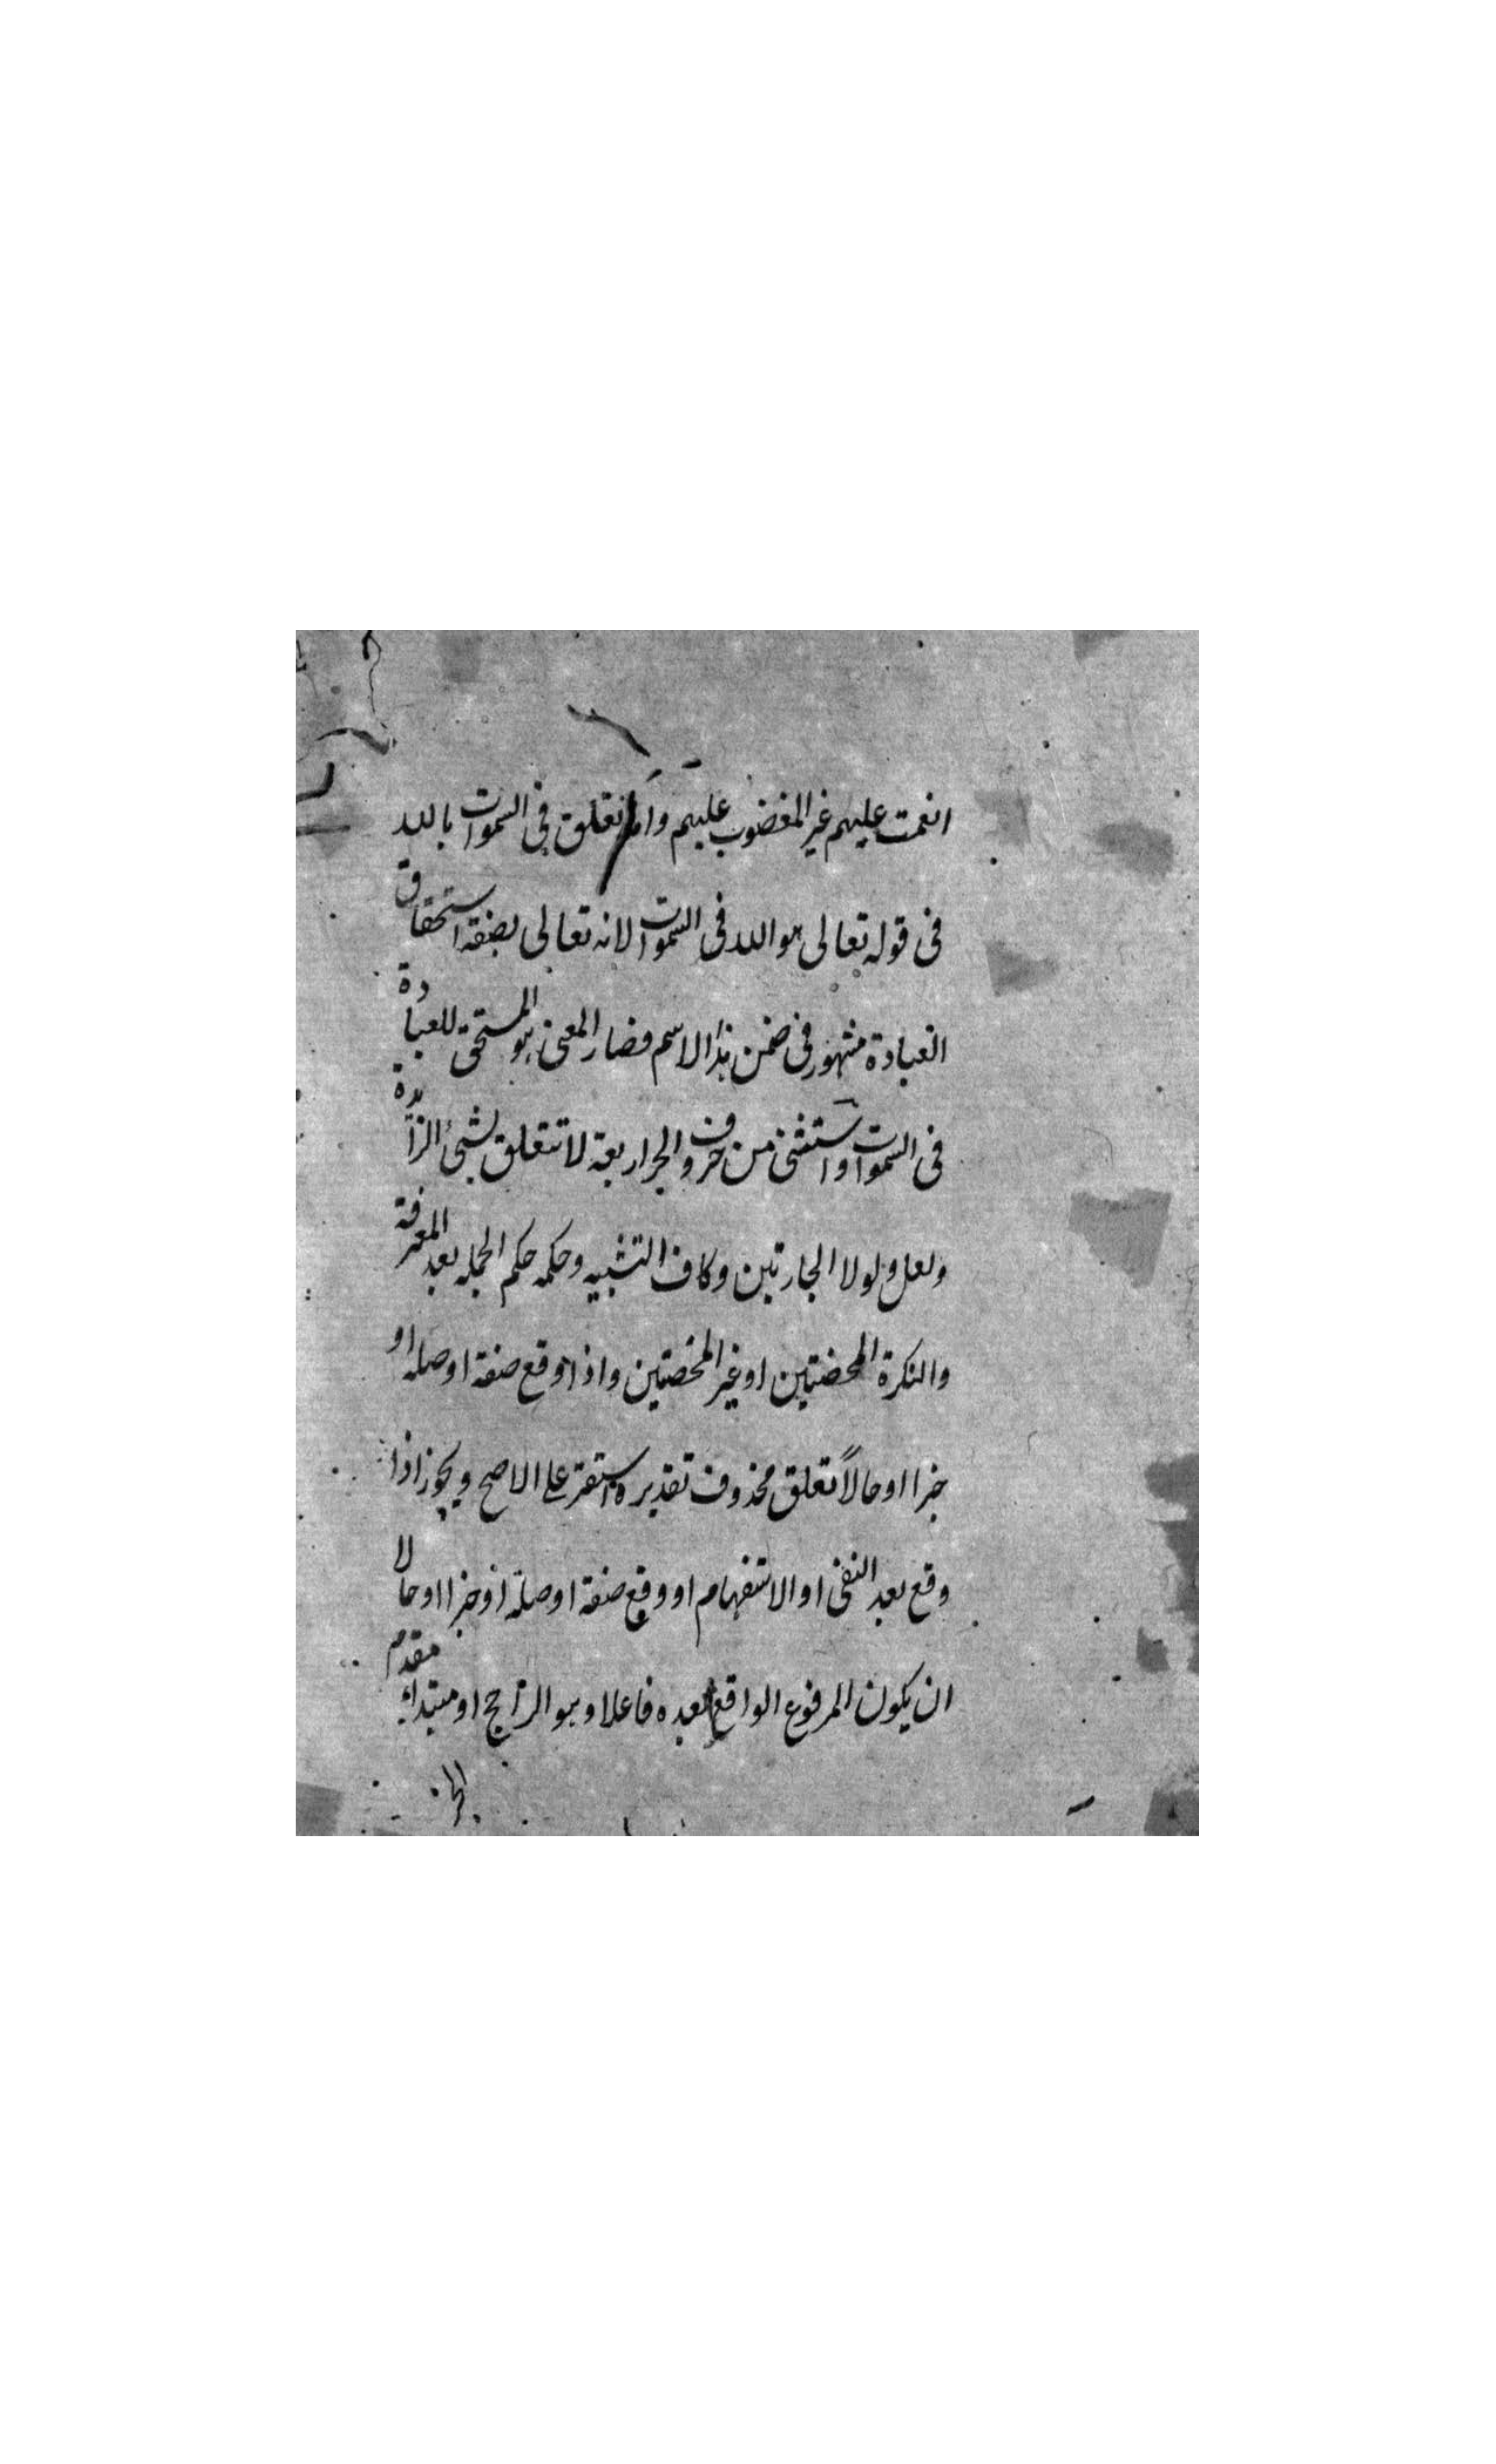 انعمت عليهم غير المغضوب عليهم وانما تعلق فى السموات بالله
فى قوله تعالى هو الله فى السموات لانه تعالى بصفة استحقاق
العبادة مشهور فى ضمن هذا الاسم فصار المعنى هو المستحق للعبادة
فى السموات واستثنى من حروف الجر اربعة لا تتعلق بشئ الزائدة
ولعل ولولا الجارتين وكاف التشبيه وحكمه حكم الجمله بعد المعرفة
والنكرة المحضتين او غير المحضتين واذا وقع صفة او صله او
خبرا او حالاً تعلق بمحذوف تقديره استقر على الاصح ويجوز اذا
وقع بعد النفى او الاستفهام او وقع صفة او صلة او خبرا او حالا
ان يكون المرفوع الواقع بعده فاعلا وهو الراجح او مبتداء مقدم
الخبر